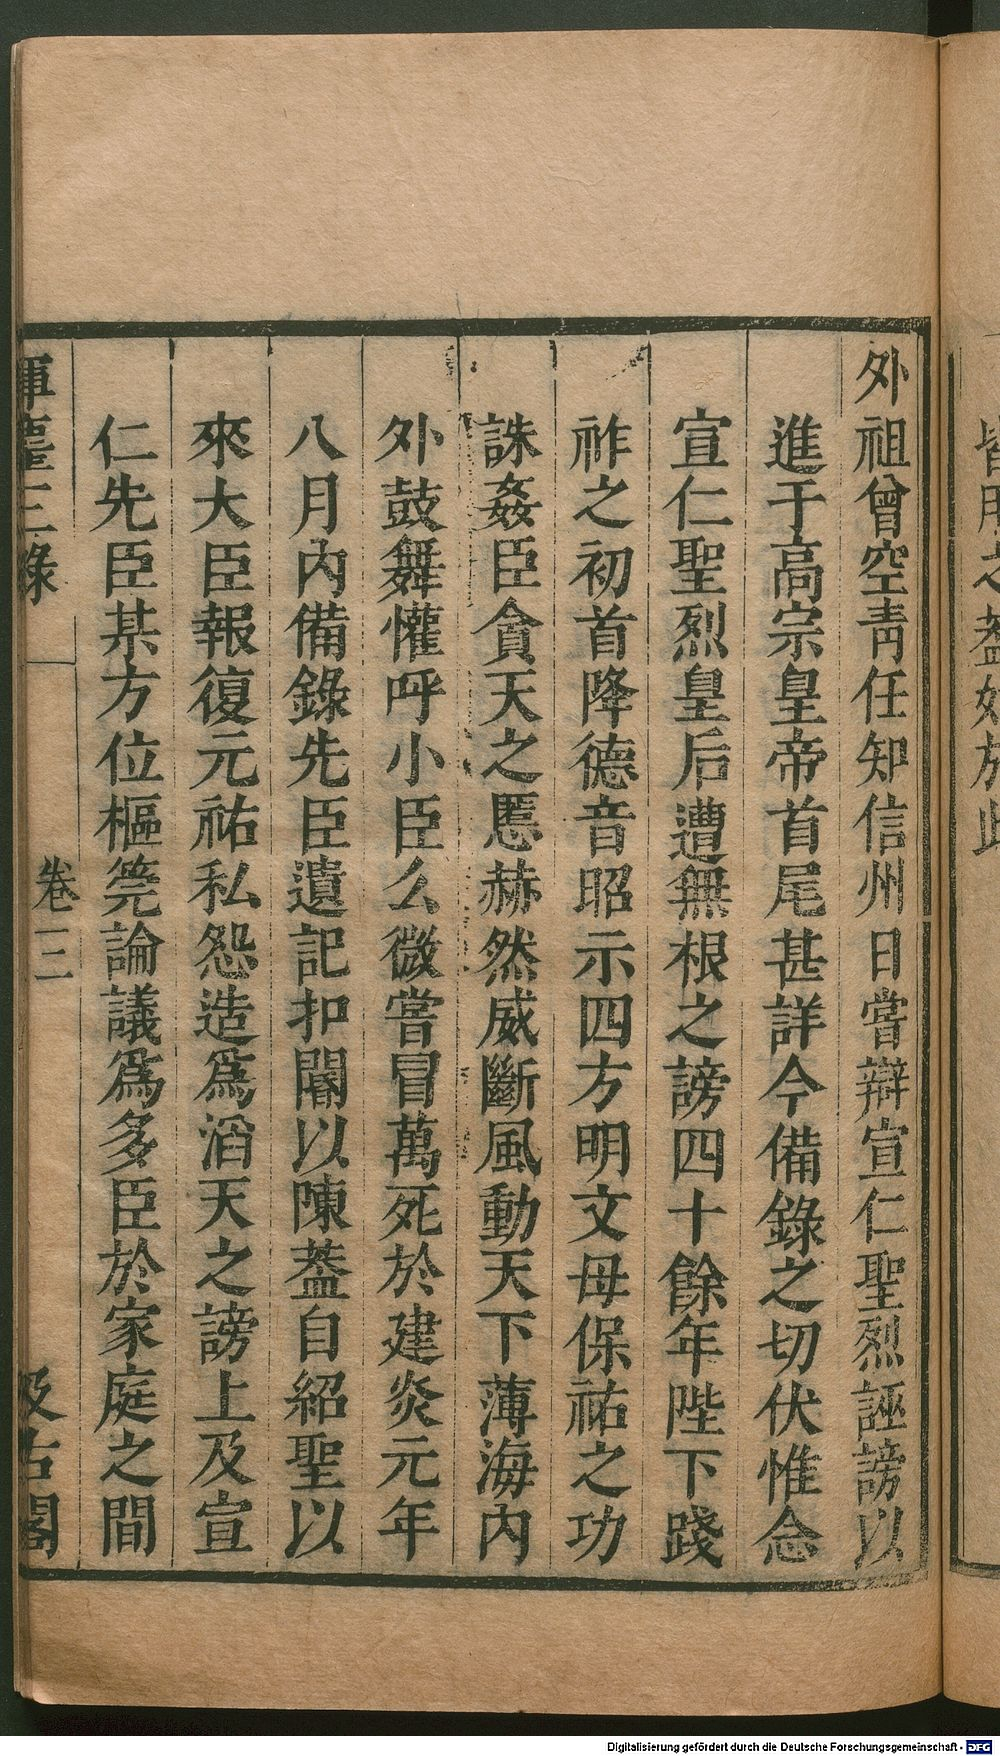 外祖曾空靑任知信州日嘗辯宣仁聖烈誣謗以
進于高宗皇帝首尾甚詳今備錄之切伏惟念
宣仁聖烈皇后遭無根之謗四十餘年陛下踐
祚之初首降德音昭示四方明文母保祐之功
誅姦臣貪天之慝赫然威斷風動天下薄海內
外鼓舞懽呼小臣么微嘗冒萬死於建炎元年
八月內備錄先臣遺記扣閽以陳葢自紹聖以
來大臣報復元祐私怨造爲滔天之謗上及宣
仁先臣某方位樞筦論議爲多臣於家庭之間
揮麈三錄
卷三
汲古閣
皆用之葢始於此
Digitalisierung gefördert durch die Deutsche Forschungsgemeinschaft - DFG